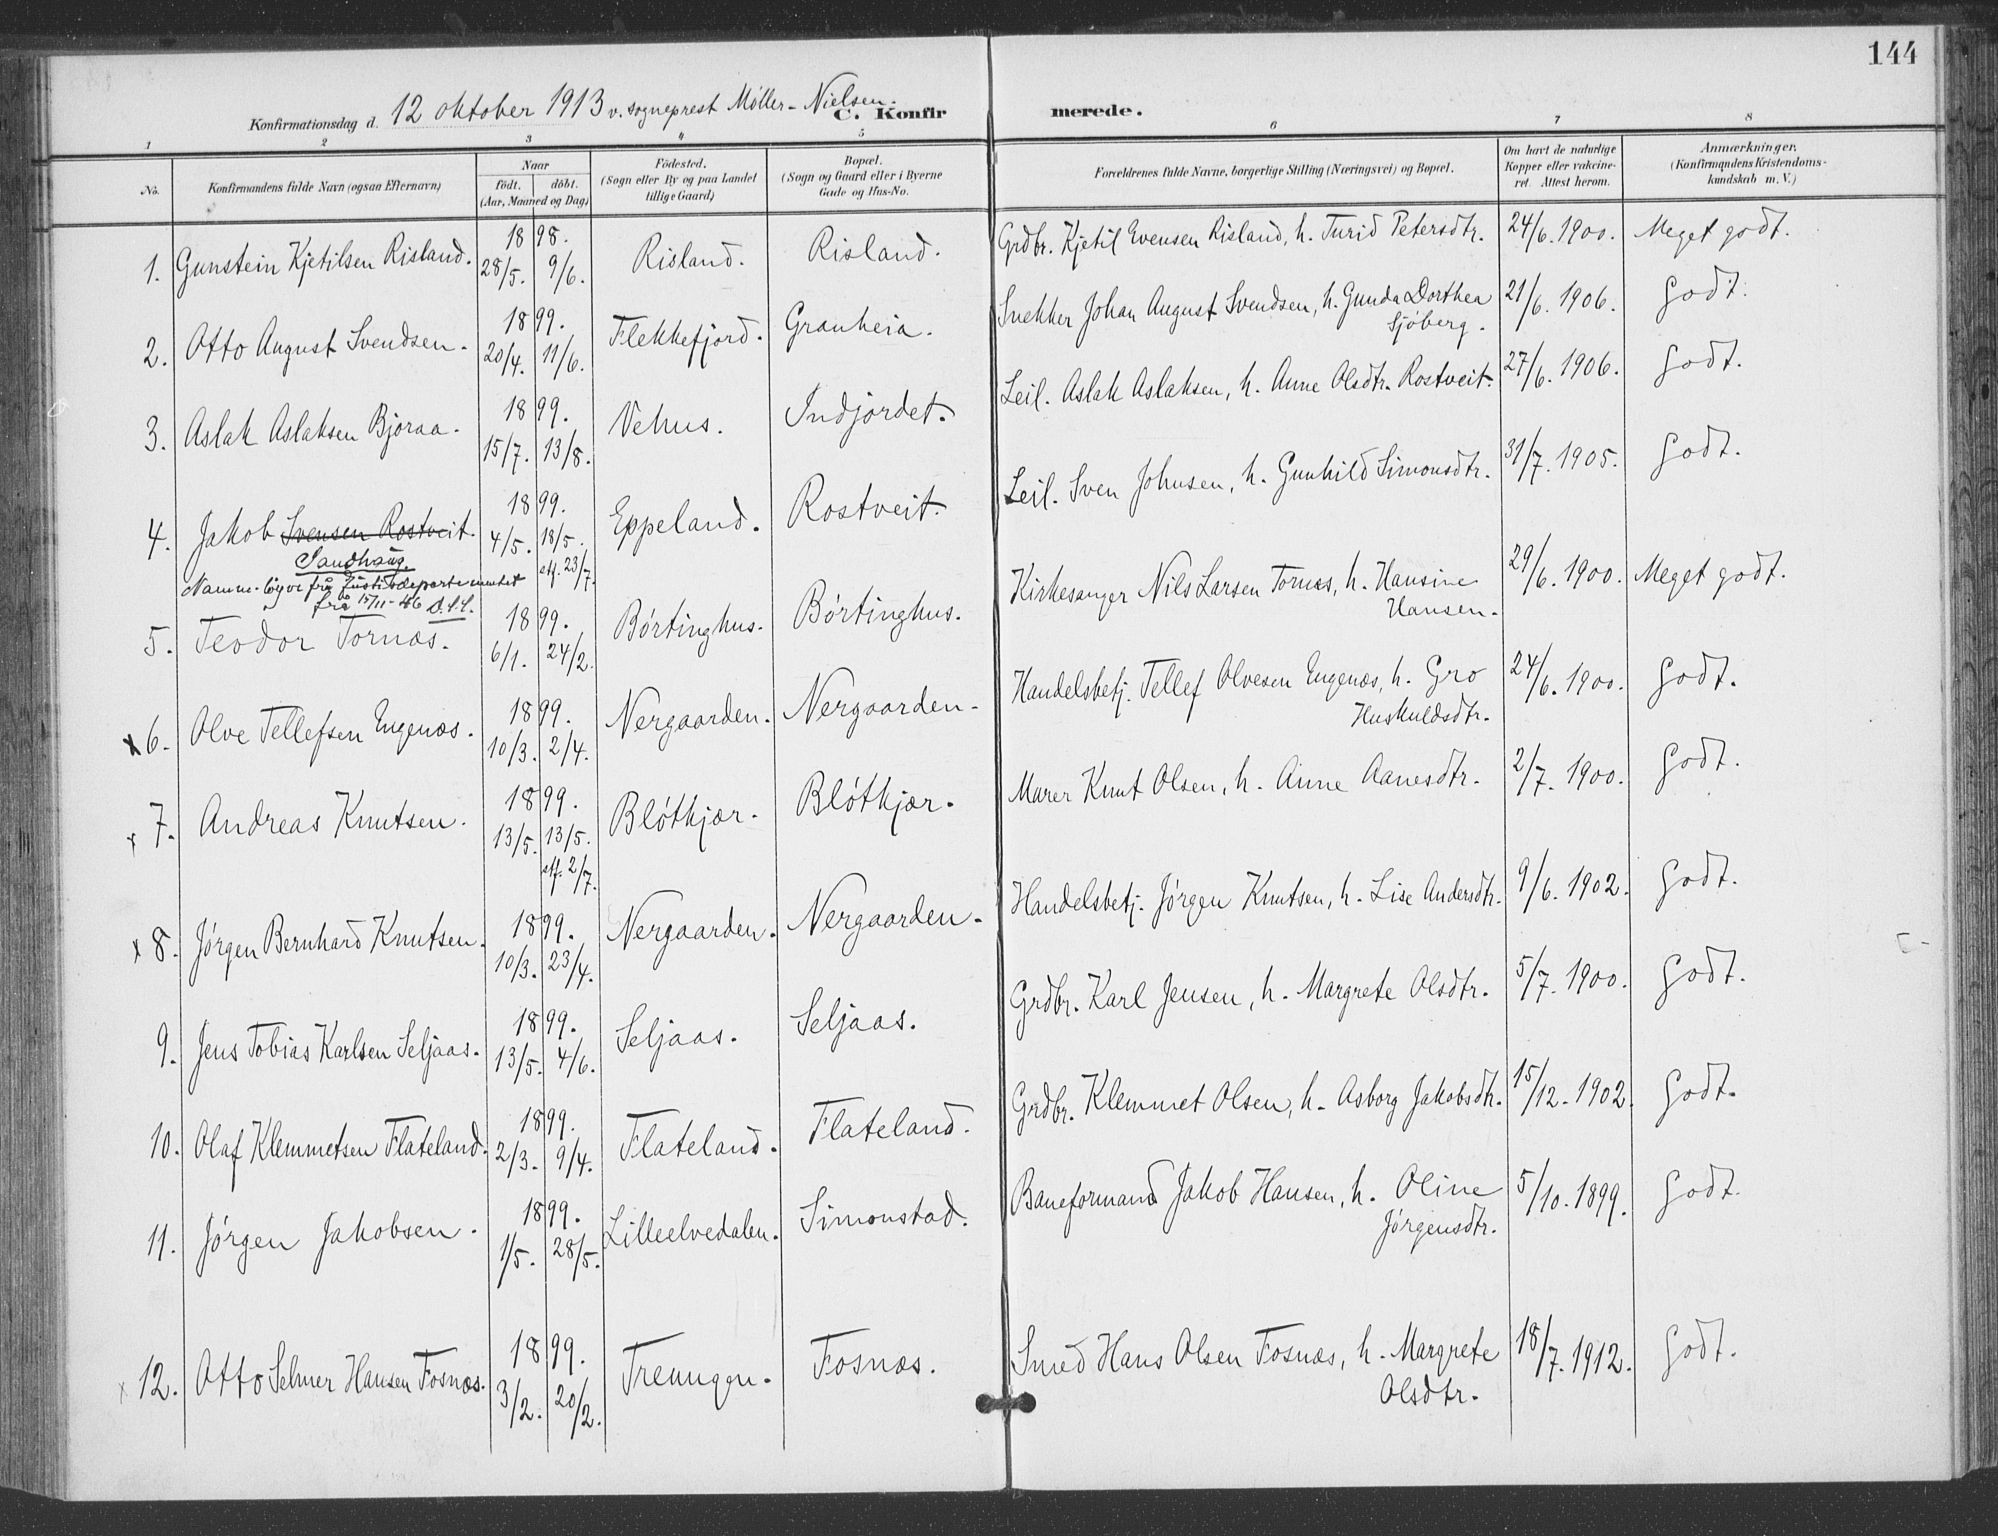 144
Konfirmationsdag d. 12 oktober 1913 v. sogneprest Møller-Nielsen.
C. Konfirmerede.
1 2 3 4 5 6 7 8
No. Konfirmandens fulde Navn (ogsaa Efternavn) Naar født. døbt. (Aar, Maaned og Dag) Fødested. (Sogn eller By og paa Landet tillige Gaard) Bopæl. (Sogn og Gaard eller i Byerne Gade og Hus-No. Forældrenes fulde Navne, borgerlige Stilling (Næringsvei) og Bopæl. Om havt de naturlige Kopper eller vakcineret. Attest herom. Anmærkninger. (Konfirmandens Kristendomskundskab m. V.)
1. Gunstein Kjetilsen Risland. 1898. 28/5. 9/6. Risland. Risland. Grdbr. Kjetil Evensen Risland, h. Turid Petersdtr. 24/6. 1900. Meget godt.
2. Otto August Svendsen. 1899. 20/4. 11/6. Flekkefjord. Granheia. Snekker Johan August Svendsen, h. Gunda Dorthea Sjøberg. 21/6. 1906. Godt.
3. Aslak Aslaksen Bjoraa. 1899. 15/7. 13/8. Vehus. Indjordet. Leil. Aslak Aslaksen, h. Anne Olsdtr. Rostveit. 27/6. 1906. Godt.
4. Jakob Svensen Rostveit. 1899. 4/5. 18/5. stf. 23/7. Eppeland. Rostveit. Leil. Sven Johnsen, h. Gunhild Simonsdtr. 31/7. 1905. Godt.
Sandhaug.
Namne-løyve frå Justisdepartementet
frå 15/11-46 O.S.S.
5. Teodor Tornæs. 1899. 6/1. 24/2. Børtinghus. Børtinghus. Kirkesanger Nils Larsen Tornæs, h. Hansine Hansen. 29/6. 1900. Meget godt.
x 6. Olve Tellefsen Engenæs. 1899. 10/3. 2/4. Nergaarden. Nergaarden. Handelsbetj. Tellef Olvesen Engenæs, h. Gro Huskuldsdtr. 24/6. 1900. Godt.
x 7. Andreas Knutsen. 1899. 13/5. 13/5. stf. 2/7. Bløtkjær. Bløtkjær. Murer Knut Olsen, h. Anne Aanesdtr. 2/7. 1900. Godt.
x 8. Jørgen Bernhard Knutsen. 1899. 10/3. 23/4. Nergaarden. Nergaarden. Handelsbetj. Jørgen Knutsen, h. Lise Andersdtr. 9/6. 1902. Godt.
9. Jens Tobias Karlsen Seljaas. 1899. 13/5. 4/6. Seljaas. Seljaas. Grdbr. Karl Jensen, h. Margrete Olsdtr. 5/7. 1900. Godt.
10. Olaf Klemmetsen Flateland. 1899. 2/3. 9/4. Flateland. Flateland. Grdbr. Klemmet Olsen, h. Asborg Jakobsdtr. 15/12. 1902. Godt.
11. Jørgen Jakobsen. 1899. 1/5. 28/5. Lilleelvedalen. Simonstad. Baneformand Jakob Hansen, h. Oline Jørgensdtr. 5/10. 1899. Godt.
x 12. Otto Selmer Hansen Fosnæs. 1899. 3/2. 20/2. Treungen. Fosnæs. Smed Hans Olsen Fosnæs, h. Margrete Olsdtr. 18/7. 1912. Godt.